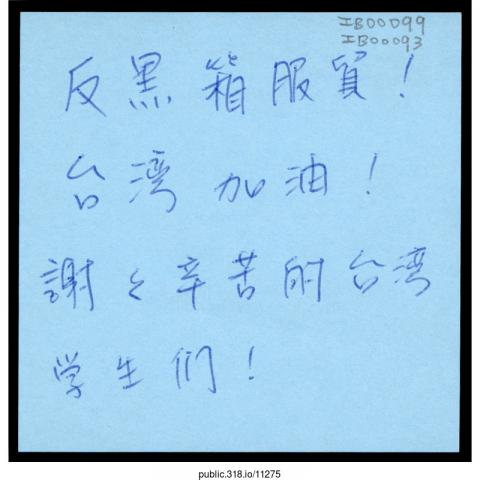 IB00099
IB00093
反黒箱服貿！
台湾加油！
謝々辛苦的台湾
学生们！
public.318.io/11275